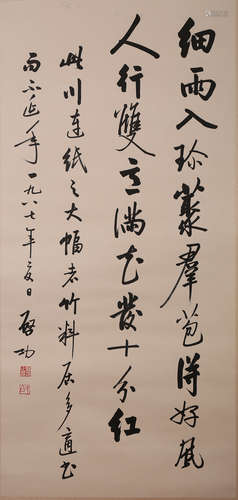 细雨入珍丛群苞得好风
人行双意满花发十分红
此川连纸之大幅者竹料居多适书
而不延年一九八七年夏日 启功